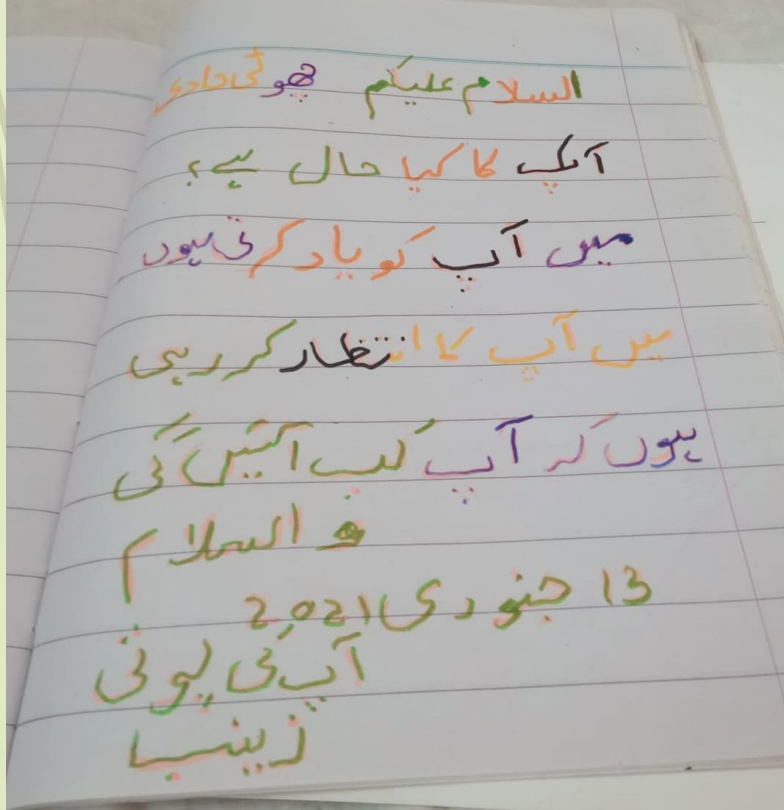 السلام علیکم چھوٹی دادی
آپ کا کیا حال ہے؟
میں آپ کو یاد کرتی ہوں
میں آپ کا انتظار کر رہی
ہوں کہ آپ کب آئیں گی
و السلام
13 جنوری 2021
آپ کی پوتی
زینب